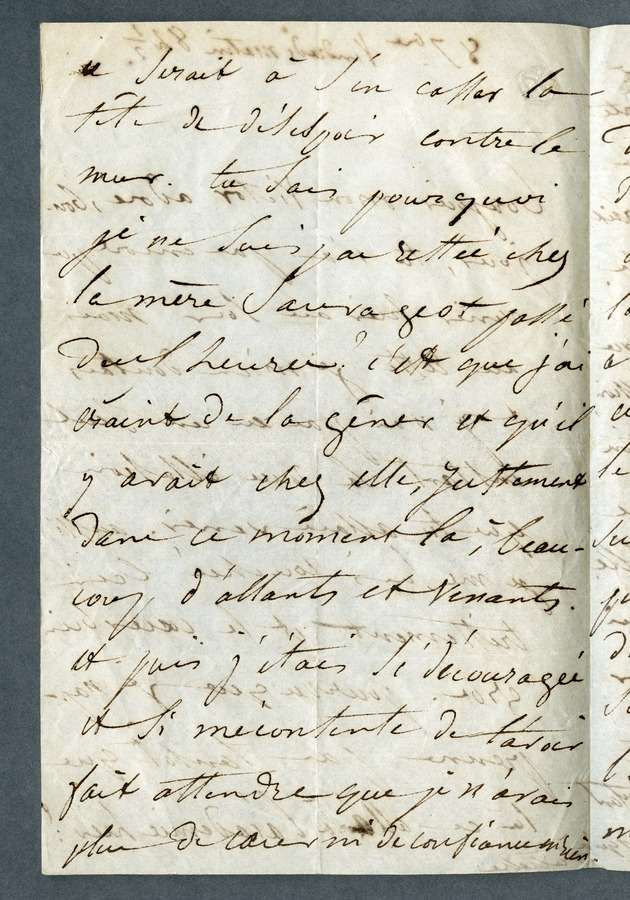 ce serait à s'en casser la
tête de désespoir contre le
mur. tu sais pourquoi
je ne suis pas restée chez
la mère Sauvageot passé
dul heure? c'est que j'ai
craint de la gêner et qu'il
y avait chez elle, justement
dans ce moment là, beau-
coup d'allants et venants.
et puis j'étais si découragée
et si mécontente de t'avoir
fait attendre que je n'avais
plus de cœur ni de confiance en rien.